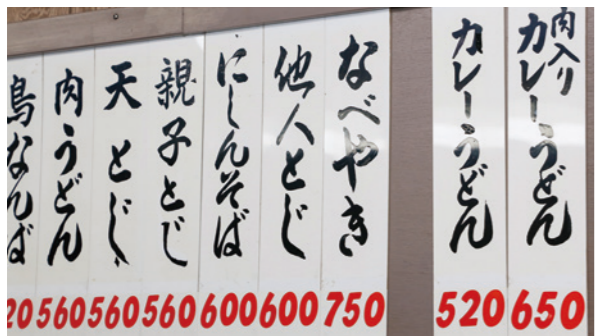 肉入りカレーうどん
650
カレーうどん
520
なべやき
750
他人とじ
600
にしんそば
600
親子とじ
560
天とじ
560
肉うどん
560
鳥なんば
20